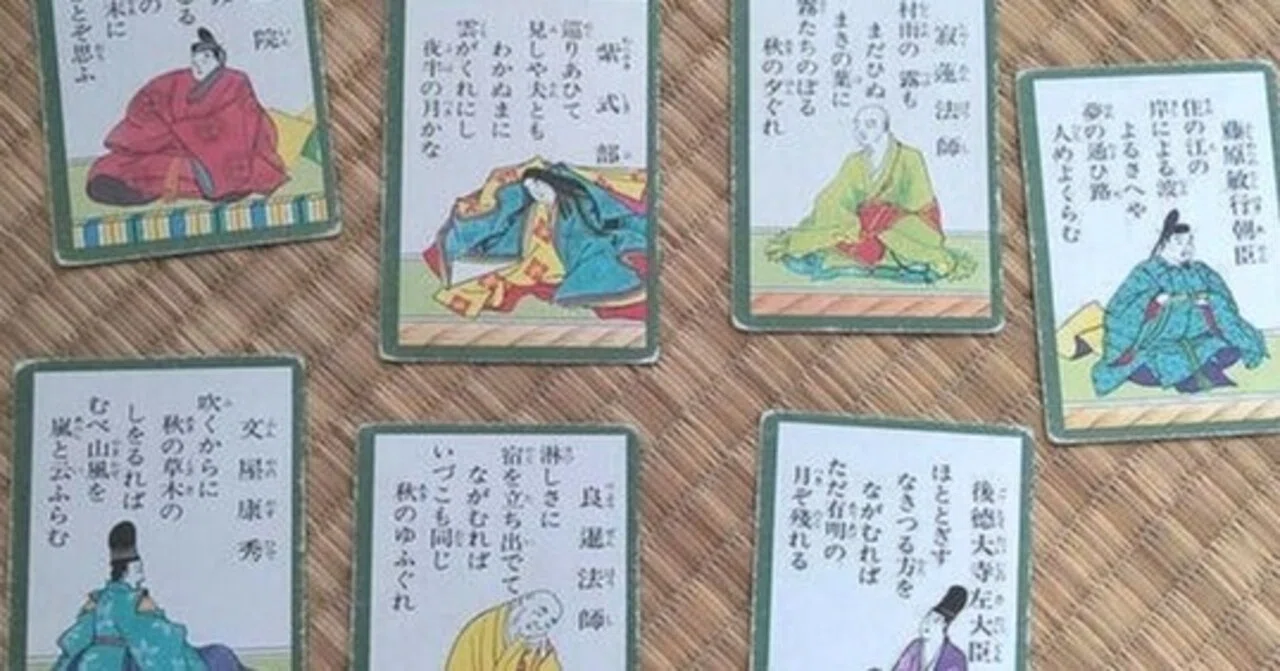 院
る
の
木に
とぞ思ふ
紫式部
巡りあひて
見しや夫とも
わかぬまに
雲がくれにし
夜半の月かな
寂蓮法師
村雨の露も
まだひぬ
まきの葉に
霧たちのぼる
秋の夕ぐれ
藤原敏行朝臣
住の江の
岸による波
よるさへや
夢の通ひ路
人めよくらむ
文屋康秀
吹くからに
秋の草木の
しをるれば
むべ山風を
嵐と云ふらむ
良暹法師
淋しさに
宿を立ち出でて
ながむれば
いづこも同じ
秋のゆふぐれ
後徳大寺左大臣
ほととぎす
なきつる方を
ながむれば
ただ有明の
月ぞ残れる